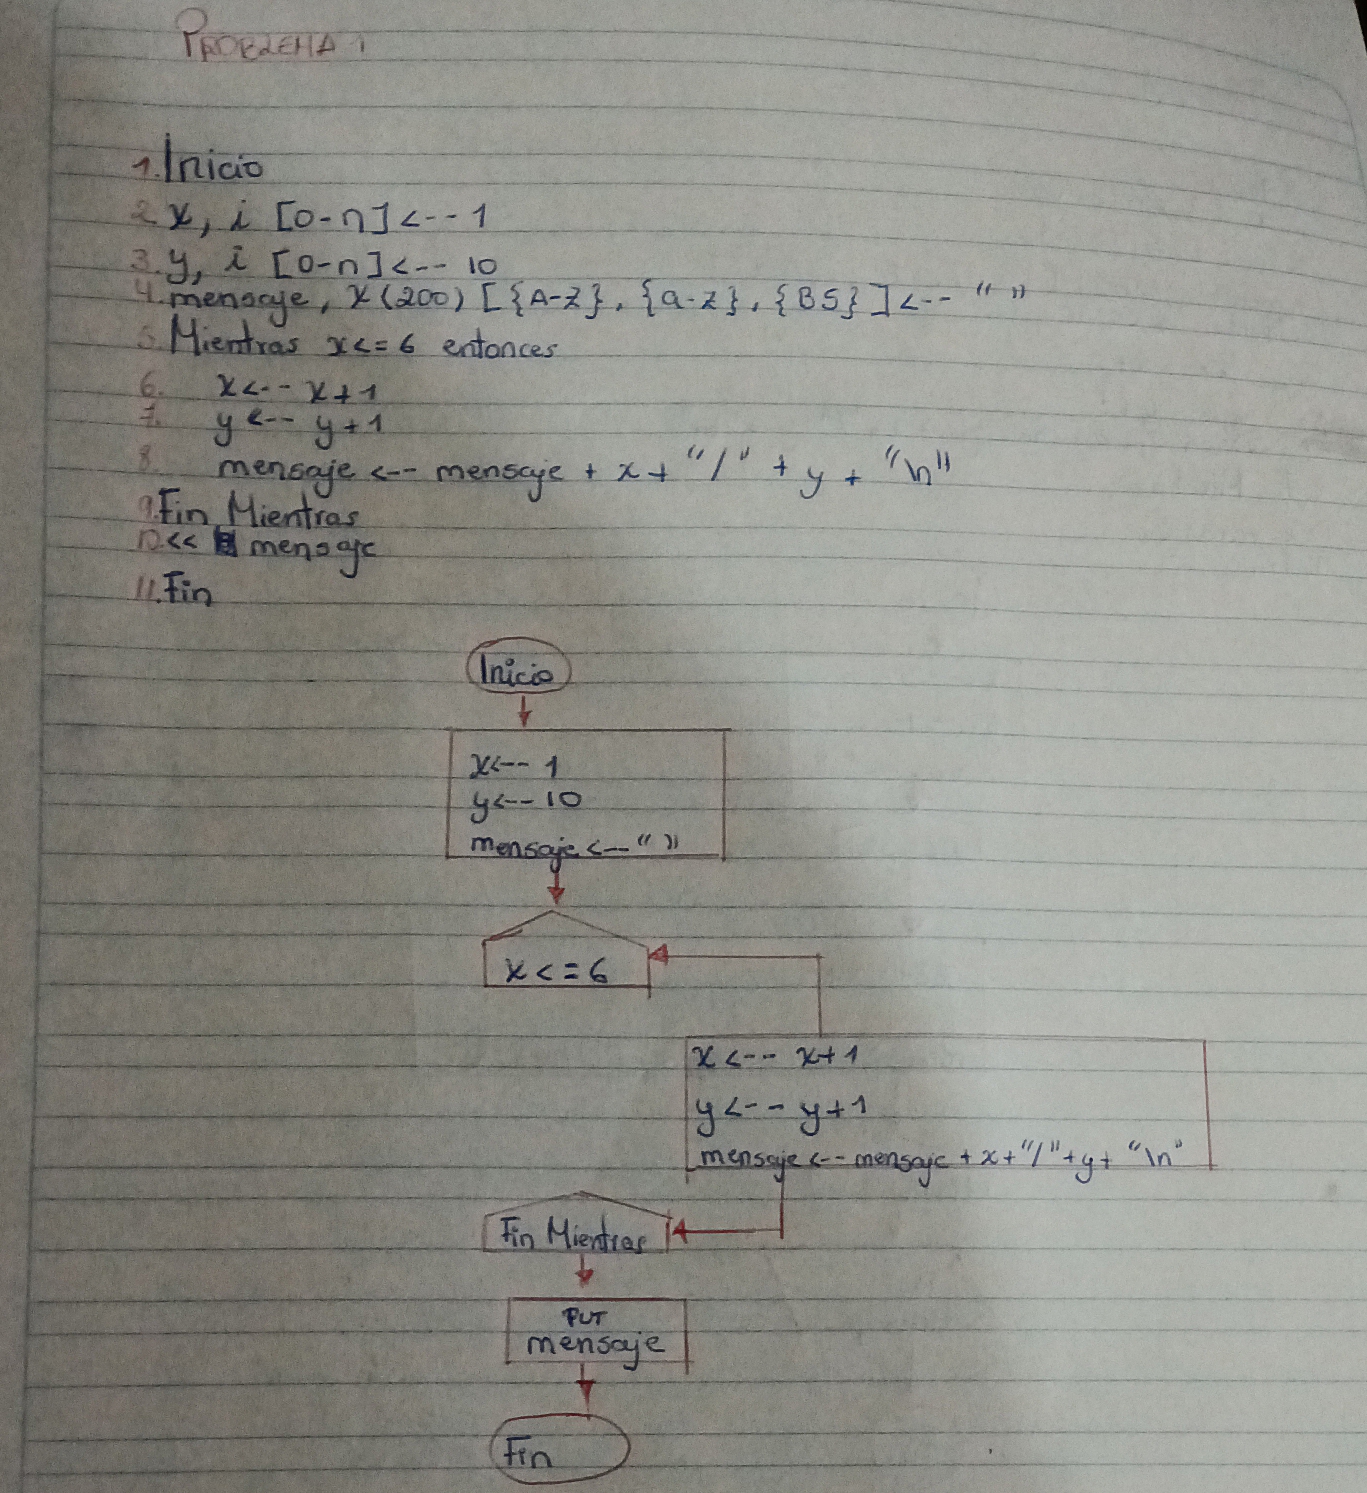 PROBLEMA 1
1. Inicio
2. x, i [0-n] <-- 1
3. y, i [0-n] <-- 10
4. mensaje, x (200) [{A-Z}, {a-z}, {BS}] <-- " "
5. Mientras x <= 6 entonces
6. x <-- x + 1
7. y <-- y + 1
8. mensaje <-- mensaje + x + "/" + y + "\n"
9. Fin Mientras
10. << mensaje
11. Fin
Inicio
x <-- 1
y <-- 10
mensaje <-- " "
x <= 6
x <-- x+1
y <-- y+1
mensaje <-- mensaje + x + "/" + y + "\n"
Fin Mientras
PUT
mensaje
Fin